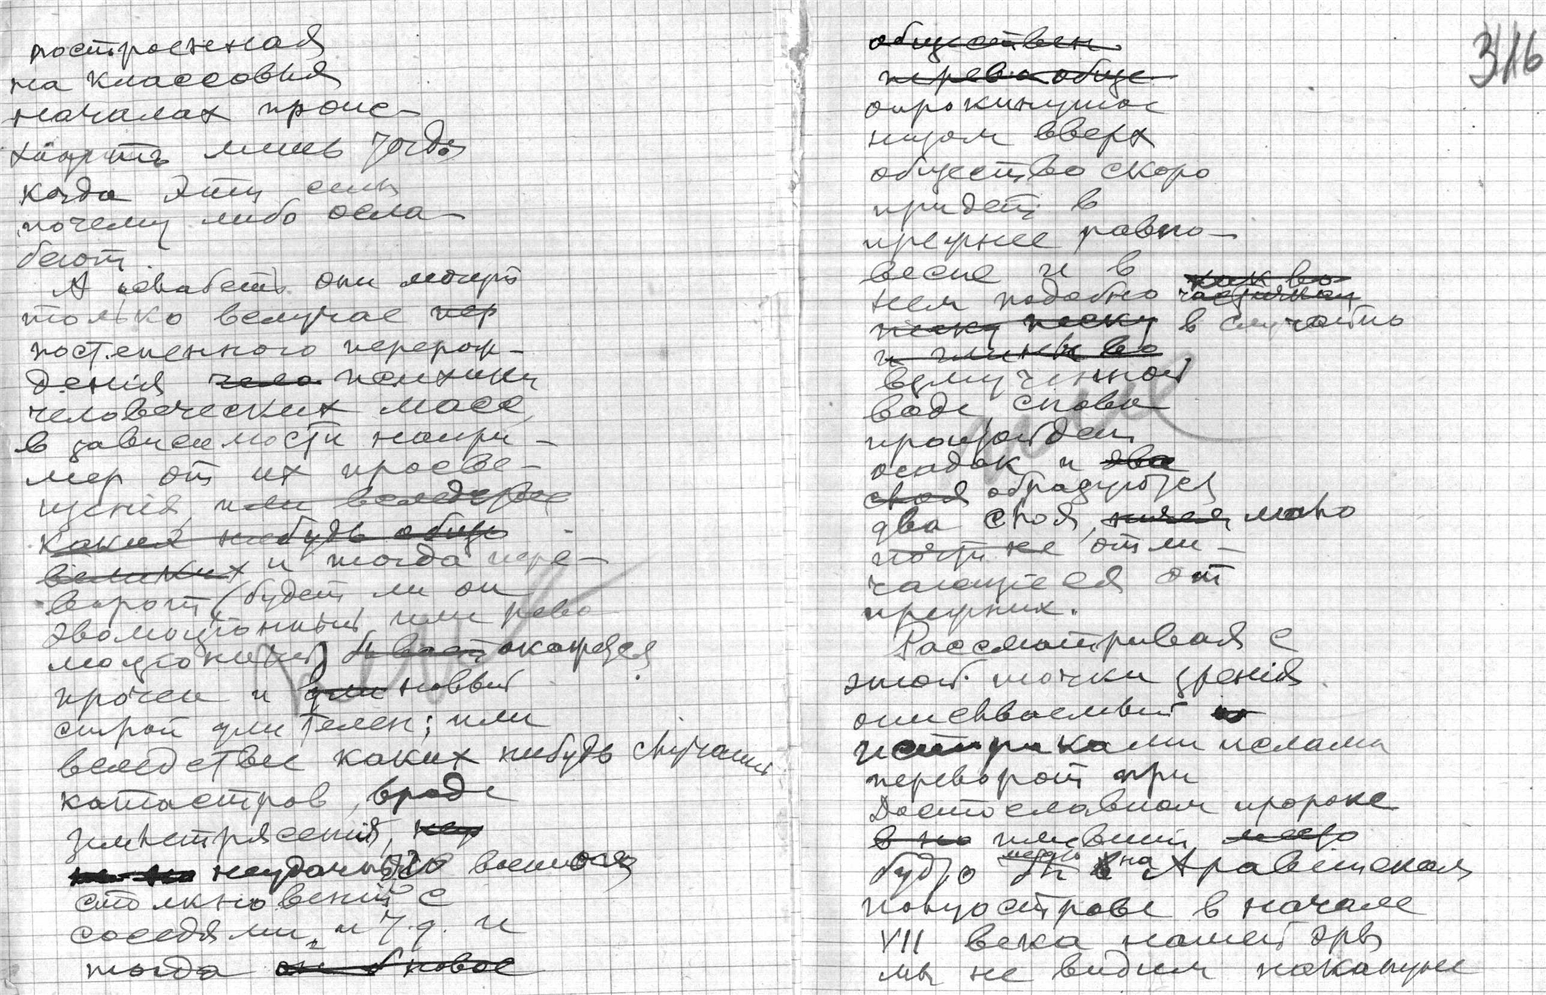 построенная
на классовыя
началах проис-
ходить лишь тогда
когда эти силы
почему либо осла-
беют
А ослабеть они могут
только вслучае пер
постепенного перерож-
денія чело психики
человеческих масс
в зависимости напри-
мер от их просве-
щенія, или вследствие
каких нибудь общо
великих и тогда пере-
ворот (будет ли он
эволюціонный или рево
люціонный) бывает окажется
прочен и для новый
строй длителен; или
вследствіе каких нибудь случайных
катастроф, вроде
землетрясений,
неудачного военного
столкновенія с
соседями, и т.д. и
тогда он б новое
316
обществен
перево обще
опрокинутое
низом вверх
общество скоро
придет в
прежнее равно-
весие и в
нем подобно как во
частичкам
песку песку в случайно
и глинки во
взмученной
воде снова
произойдет
осадок и два
слоя образуются
два слоя, мало
почти не отли-
чающіеся от
прежних.
Рассматривая с
этой точки зренія
описываемый
историками ислама
переворот при
Достославном пророке
в но имевший место
будто бы на Аравійском
полуострове в начале
VII века нашей эры
мы не видим накануне